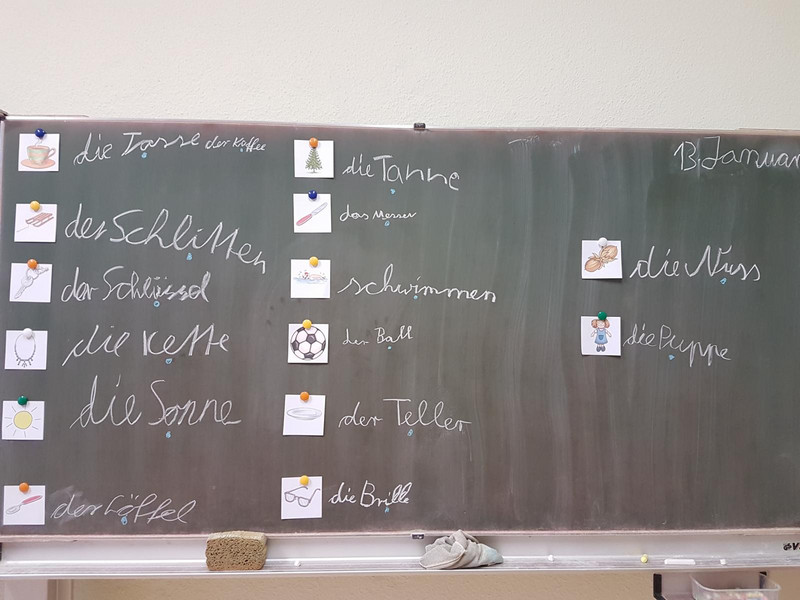 die Tasse der Kaffee
der Schlitten
der Schlüssel
die Kette
die Sonne
der Löffel
die Tanne
das Messer
schwimmen
der Ball
der Teller
die Brille
13. Januar
die Nuss
die Puppe